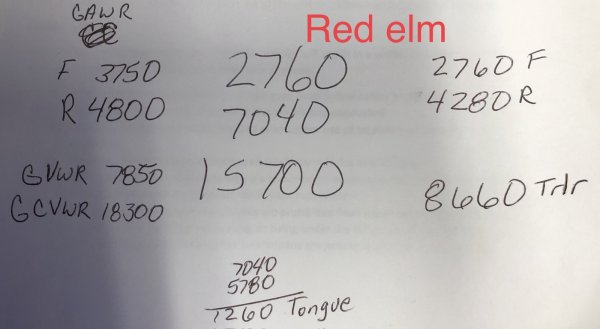 GAWR
Red elm
F 3750
2760
2760 F
R 4800
7040
4280 R
GVWR 7850
15700
8660 Trlr
GCVWR 18300
7040
5780
1260 Tongue